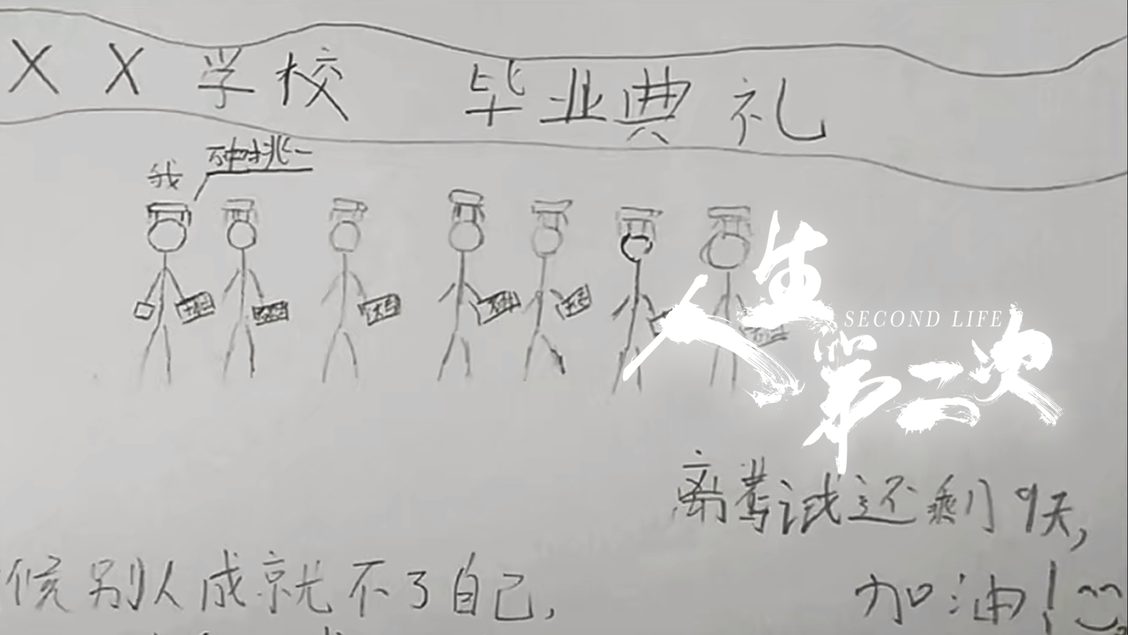 XX学校 毕业典礼
我
人生
SECOND LIFE
第二次
离考试还剩9天,
候别人成就不了自己,
加油!